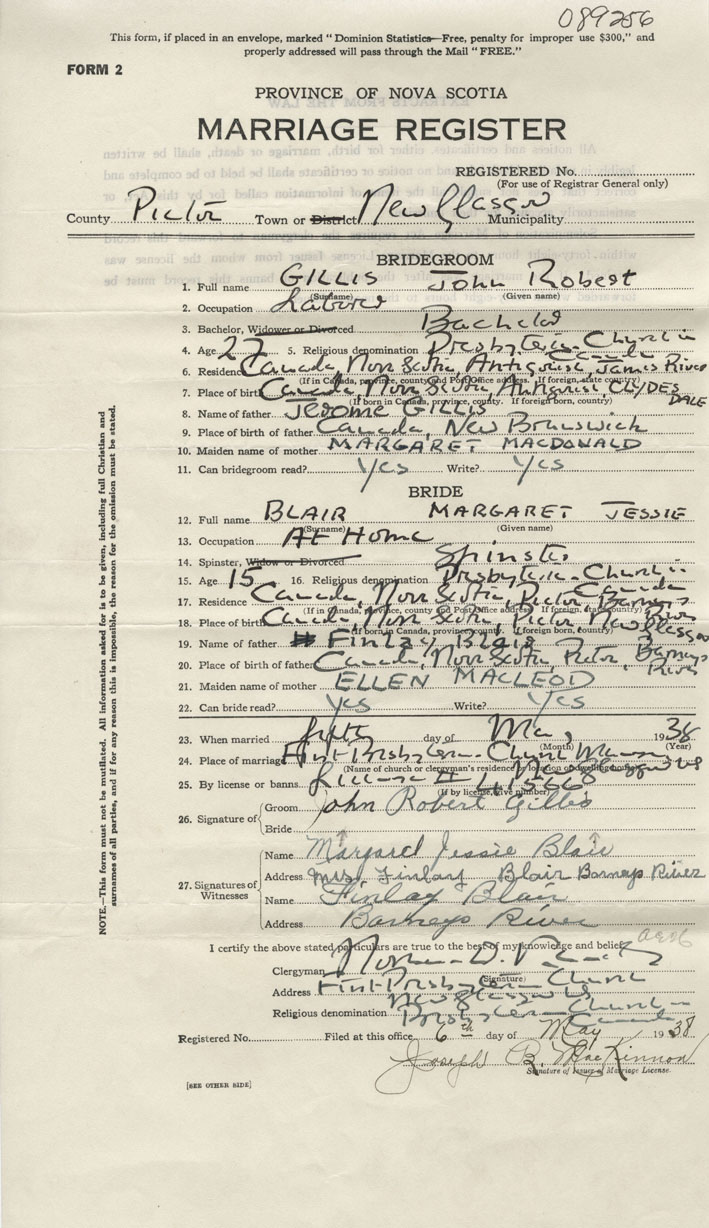 089256
This form, if placed in an envelope, marked "Dominion Statistics—Free, penalty for improper use $300," and
properly addressed will pass through the Mail "FREE."
FORM 2
PROVINCE OF NOVA SCOTIA
MARRIAGE REGISTER
REGISTERED No.
(For use of Registrar General only)
County Pictou Town or District New Glasgow Municipality
BRIDEGROOM
1. Full name GILLIS John Robert
(Surname) (Given name)
2. Occupation Laborer
3. Bachelor, Widower or Divorced Bachelor
4. Age 27 5. Religious denomination Presbyterian Church in Canada
6. Residence Canada, Nova Scotia, Antigonish, James River
(If in Canada, province, county and Post Office address. If foreign, state country)
7. Place of birth Canada, Nova Scotia, Antigonish, CLYDESDALE
(If born in Canada, province, county. If foreign born, country)
8. Name of father Jerome GILLIS
9. Place of birth of father Canada, New Brunswick
10. Maiden name of mother MARGARET MACDONALD
11. Can bridegroom read? Yes Write? Yes
BRIDE
12. Full name BLAIR MARGARET JESSIE
(Surname) (Given name)
13. Occupation At Home
14. Spinster, Widow or Divorced Spinster
15. Age 15 16. Religious denomination Presbyterian Church in Canada
17. Residence Canada, Nova Scotia, Pictou, Barneys River
(If in Canada, province, county and Post Office address. If foreign, state country)
18. Place of birth Canada, Nova Scotia, Pictou, New Glasgow
(If born in Canada, province, county. If foreign born, country)
19. Name of father Finlay Blair
20. Place of birth of father Canada, Nova Scotia, Pictou, Barneys River
21. Maiden name of mother ELLEN MACLEOD
22. Can bride read? Yes Write? Yes
23. When married fifth day of May, 1938
(Month) (Year)
24. Place of marriage First Presbyterian Church Manse New Glasgow NS
(Name of church or clergyman's residence by location or building)
25. By license or banns License # 41566
(If by license, give number)
26. Signature of Groom John Robert Gillis
Bride
Name Margaret Jessie Blair
Address Mrs Finlay Blair Barneys River
27. Signatures of Witnesses
Name Finlay Blair
Address Barneys River
I certify the above stated particulars are true to the best of my knowledge and belief.
Clergyman
(Signature)
Address First Presbyterian Church
New Glasgow NS
Religious denomination Presbyterian Church in Canada
Registered No. Filed at this office 6th day of May 1938
Joseph B. MacKinnon
Signature of Issuer of Marriage License.
[SEE OTHER SIDE]
NOTE.—This form must not be mutilated. All information asked for is to be given, including full Christian and
surnames of all parties, and if for any reason this is impossible, the reason for the omission must be stated.